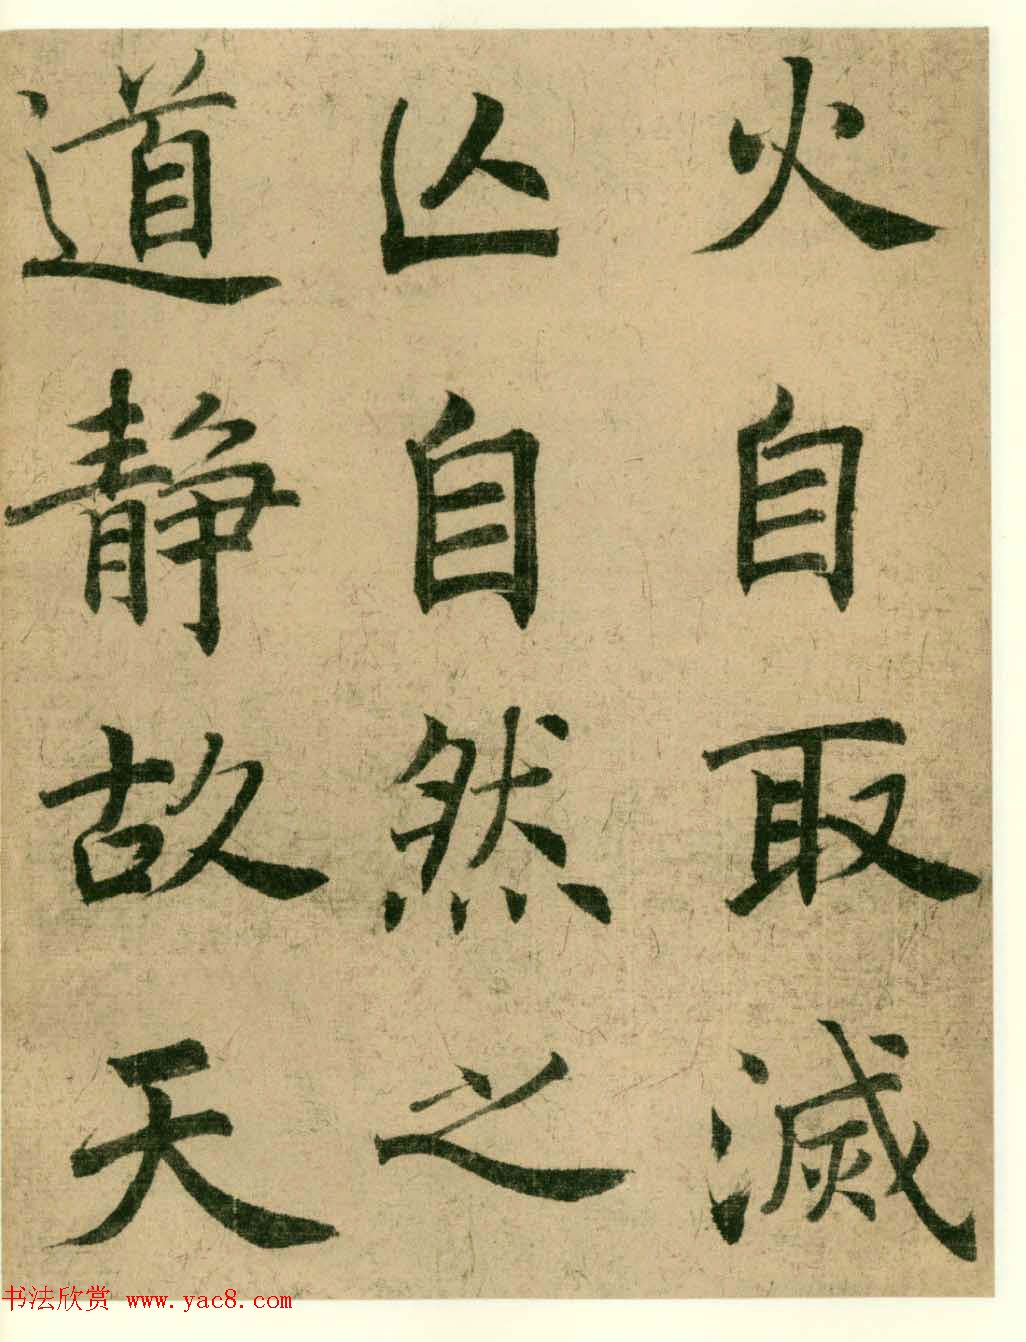 火自取滅
亾自然之
道静故天
书法欣赏 www.yac8.com